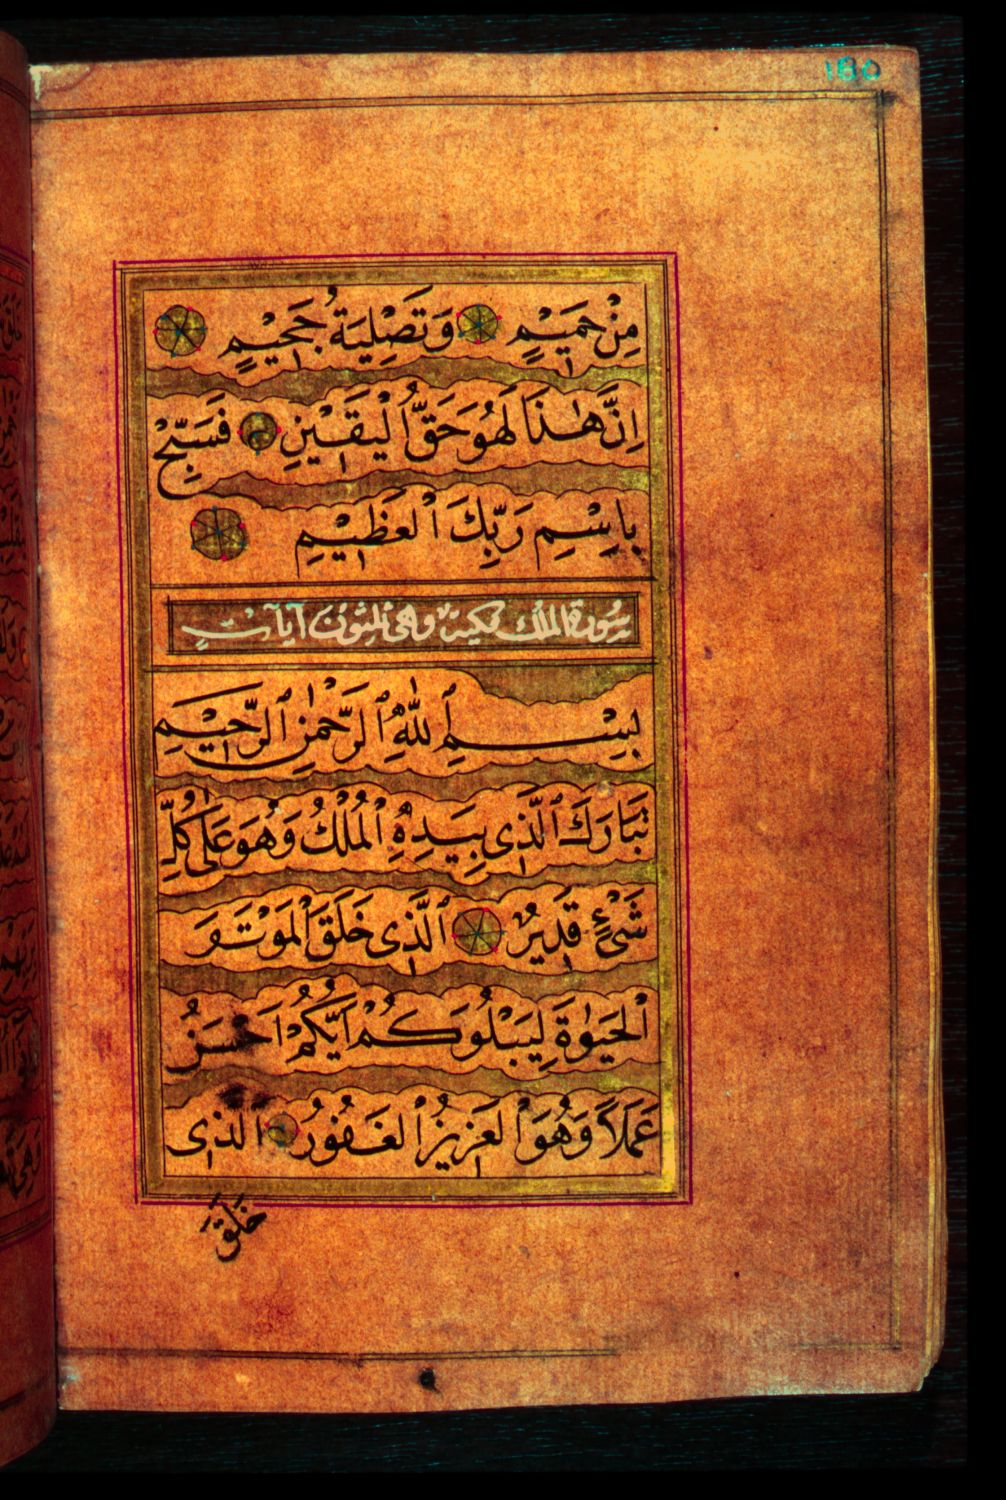 180
مِنْ حَمِيْمٍ وَتَصْلِيَةُ جَحِيْمٍ
اِنَّ هٰذَا لَهُوَ حَقُّ الْيَقِيْنِ فَسَبِّحْ
بِاسْمِ رَبِّكَ الْعَظِيْمِ
سُورَةُ الملك مكية وهى ثلثون آيات
بِسْمِ اللّٰهِ الرَّحْمٰنِ الرَّحِيْمِ
تَبَارَكَ الَّذِى بِيَدِهِ الْمُلْكُ وَهُوَ عَلٰى كُلِّ
شَىْءٍ قَدِيرٌ الَّذِى خَلَقَ الْمَوْتَ وَ
الْحَيٰوةَ لِيَبْلُوَكُمْ اَيُّكُمْ اَحْسَنُ
عَمَلًا وَهُوَ الْعَزِيزُ الْغَفُورُ الَّذِى
خَلَقَ